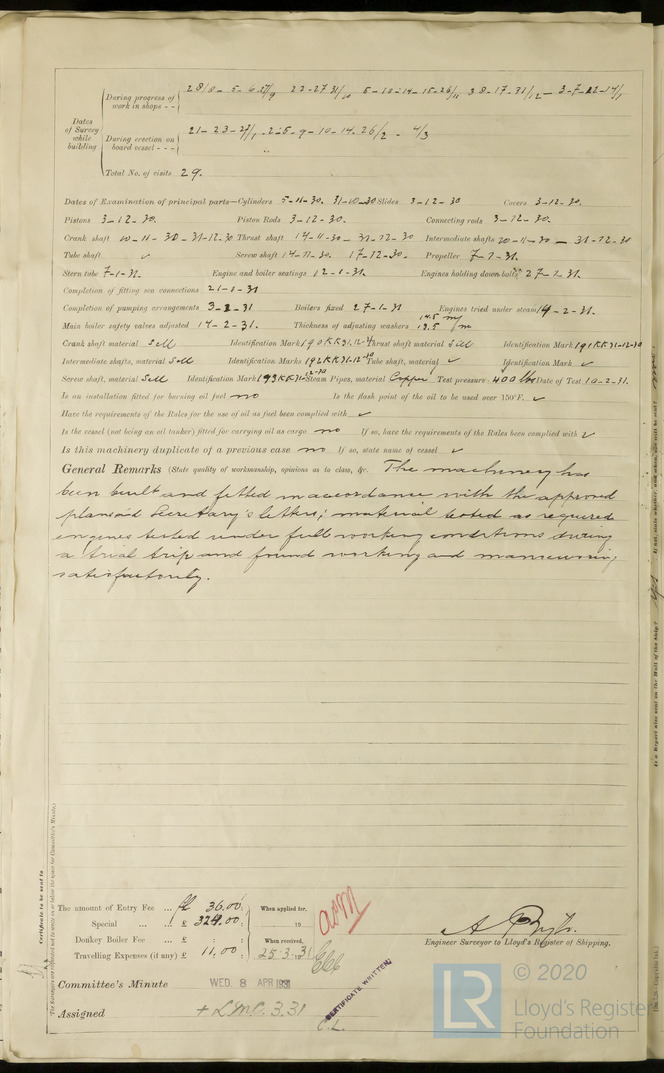 Dates of Survey while building
During progress of work in shops - -
During erection on board vessel - - -
21- 23- 27/1 - 2-5-9-10-14-26/2 - 4/3
Total No. of visits 29.
Dates of Examination of principal parts—Cylinders 5-11-30. 31-10-30 Slides 3-12-30 Covers 3-12-30.
Pistons 3-12-30. Piston Rods 3-12-30. Connecting rods 3-12-30.
Crank shaft 10-11-30-31-12-30 Thrust shaft 14-11-30 — 31-12-30 Intermediate shafts 20-11-30 — 31-12-30
Tube shaft ✓ Screw shaft 14-11-30. 17-12-30. Propeller 7-1-31.
Stern tube 7-1-31. Engine and boiler seatings 12-1-31. Engines holding down bolts 27-1-31.
Completion of fitting sea connections 21-1-31
Completion of pumping arrangements 3-2-31 Boilers fixed 27-1-31 Engines tried under steam 14-2-31.
Main boiler safety valves adjusted 14-2-31. Thickness of adjusting washers 14.5 13.5
Crank shaft material Steel Identification Mark 190KK31.12.30 Thrust shaft material Steel Identification Mark 191KK31-12-30
Intermediate shafts, material Steel Identification Marks 192KK31-12-30 Tube shaft, material ✓ Identification Mark ✓
Screw shaft, material Steel Identification Mark 193KK31-12-30 Steam Pipes, material Copper Test pressure 400 lbs Date of Test 10-2-31.
Is an installation fitted for burning oil fuel no Is the flash point of the oil to be used over 150°F. ✓
Have the requirements of the Rules for the use of oil as fuel been complied with ✓
Is the vessel (not being an oil tanker) fitted for carrying oil as cargo no If so, have the requirements of the Rules been complied with ✓
Is this machinery duplicate of a previous case no If so, state name of vessel ✓
General Remarks (State quality of workmanship, opinions as to class, &c. The machinery has
been built and fitted in accordance with the approved
plans and Secretary's letters; material tested as required
engines tested under full working conditions during
a trial trip and found working and manœuvring
satisfactorily.
The amount of Entry Fee ... fl 36.00: When applied for,
Special ... ... £ 324.00: 19
Donkey Boiler Fee ... £ : : When received,
Travelling Expenses (if any) £ 11.00: 25.3.31
Engineer Surveyor to Lloyd's Register of Shipping.
Committee's Minute WED. 8 APR 1931
Assigned + LMC. 3.31
CERTIFICATE WRITTEN
C.L.
Certificate to be sent to
LR
© 2020
Lloyd's Register
Foundation